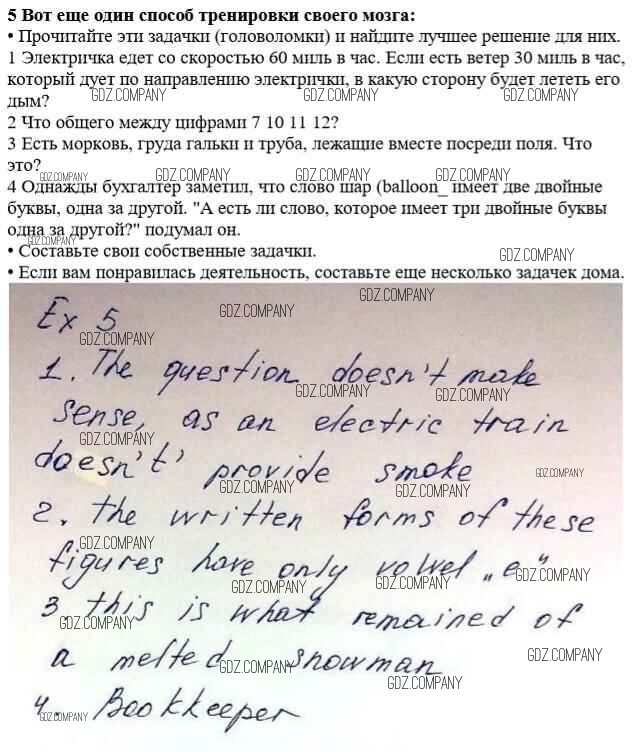 5 Вот еще один способ тренировки своего мозга:
• Прочитайте эти задачки (головоломки) и найдите лучшее решение для них.
1 Электричка едет со скоростью 60 миль в час. Если есть ветер 30 миль в час,
который дует по направлению электрички, в какую сторону будет лететь его
дым?
2 Что общего между цифрами 7 10 11 12?
3 Есть морковь, груда гальки и труба, лежащие вместе посреди поля. Что
это?
4 Однажды бухгалтер заметил, что слово шар (balloon_ имеет две двойные
буквы, одна за другой. "А есть ли слово, которое имеет три двойные буквы
одна за другой?" подумал он.
• Составьте свои собственные задачки.
• Если вам понравилась деятельность, составьте еще несколько задачек дома.
Ex 5
1. The question doesn't make
sense, as an electric train
doesn't' provide smoke
2. the written forms of these
figures have only vowel „e"
3. this is what remained of
a melted snowman
4. Bookkeeper
GDZ.COMPANY